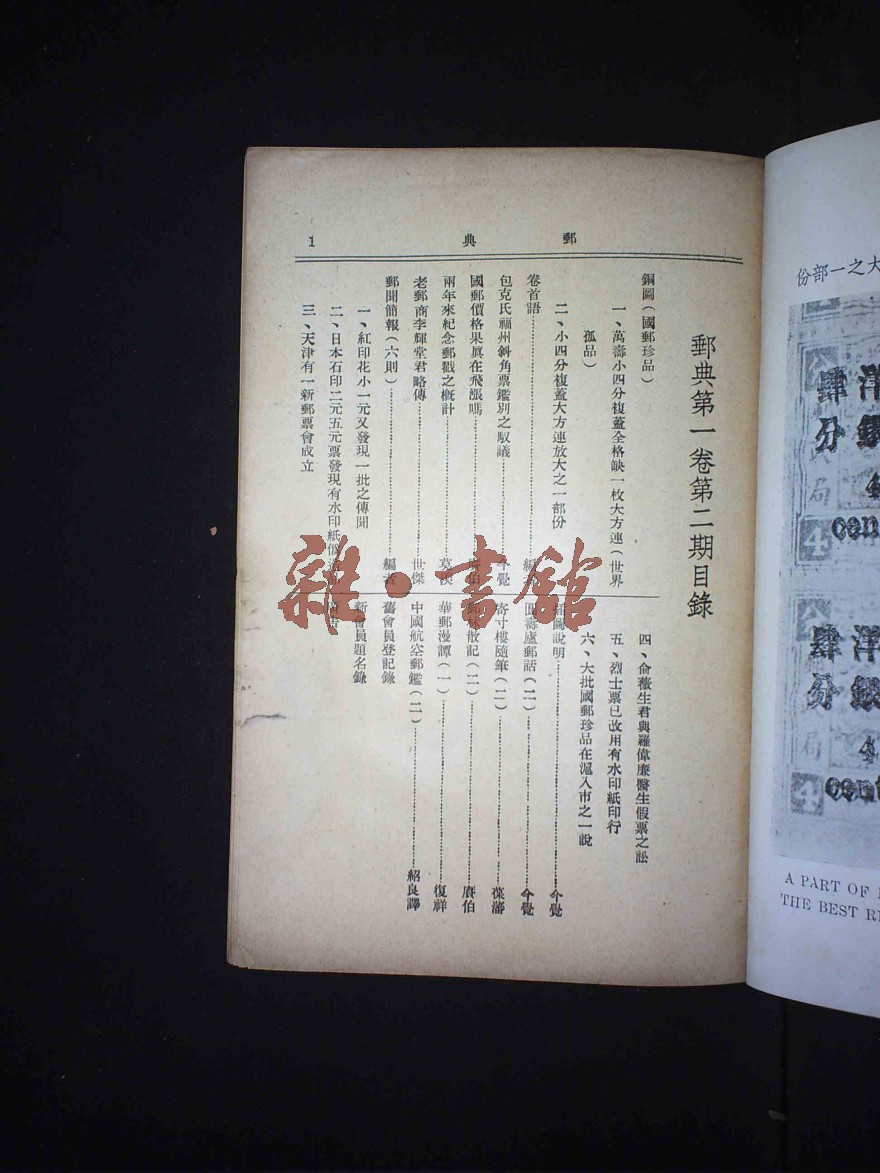 郵典
1
郵典第一卷第二期目錄
銅圖（國郵珍品）
一、萬壽小四分複蓋全格缺一枚大方連（世界
孤品）
二、小四分複蓋大方連放大之一部份
卷首語 編者
包克氏福州斜角票鑑別之馭議 今覺
國郵價格果真在飛漲嗎
兩年來紀念郵戳之概計
老郵商李輝堂君略傳 世傑
郵聞簡報（六則） 編者
一、紅印花小一元又發現一批之傳聞
二、日本石印二元五元票發現有水印紙
三、天津有一新郵票會成立
四、俞薇生君與羅偉廉醫生假票之訟
五、烈士票已改用有水印紙印行
六、大批國郵珍品在滬入市之一說
圖說明 今覺
壽廬郵話（二） 今覺
寄寸樓隨筆（二） 葆藩
散記（二） 賡伯
華郵漫譚（一） 復祥
中國航空郵鑑（二） 紹良譯
舊會員登記錄
新會員題名錄
雜·書館
大之一部份
肆分
洋銀
局
4
cen
肆分
洋銀
局
4
cent
A PART OF
THE BEST RE